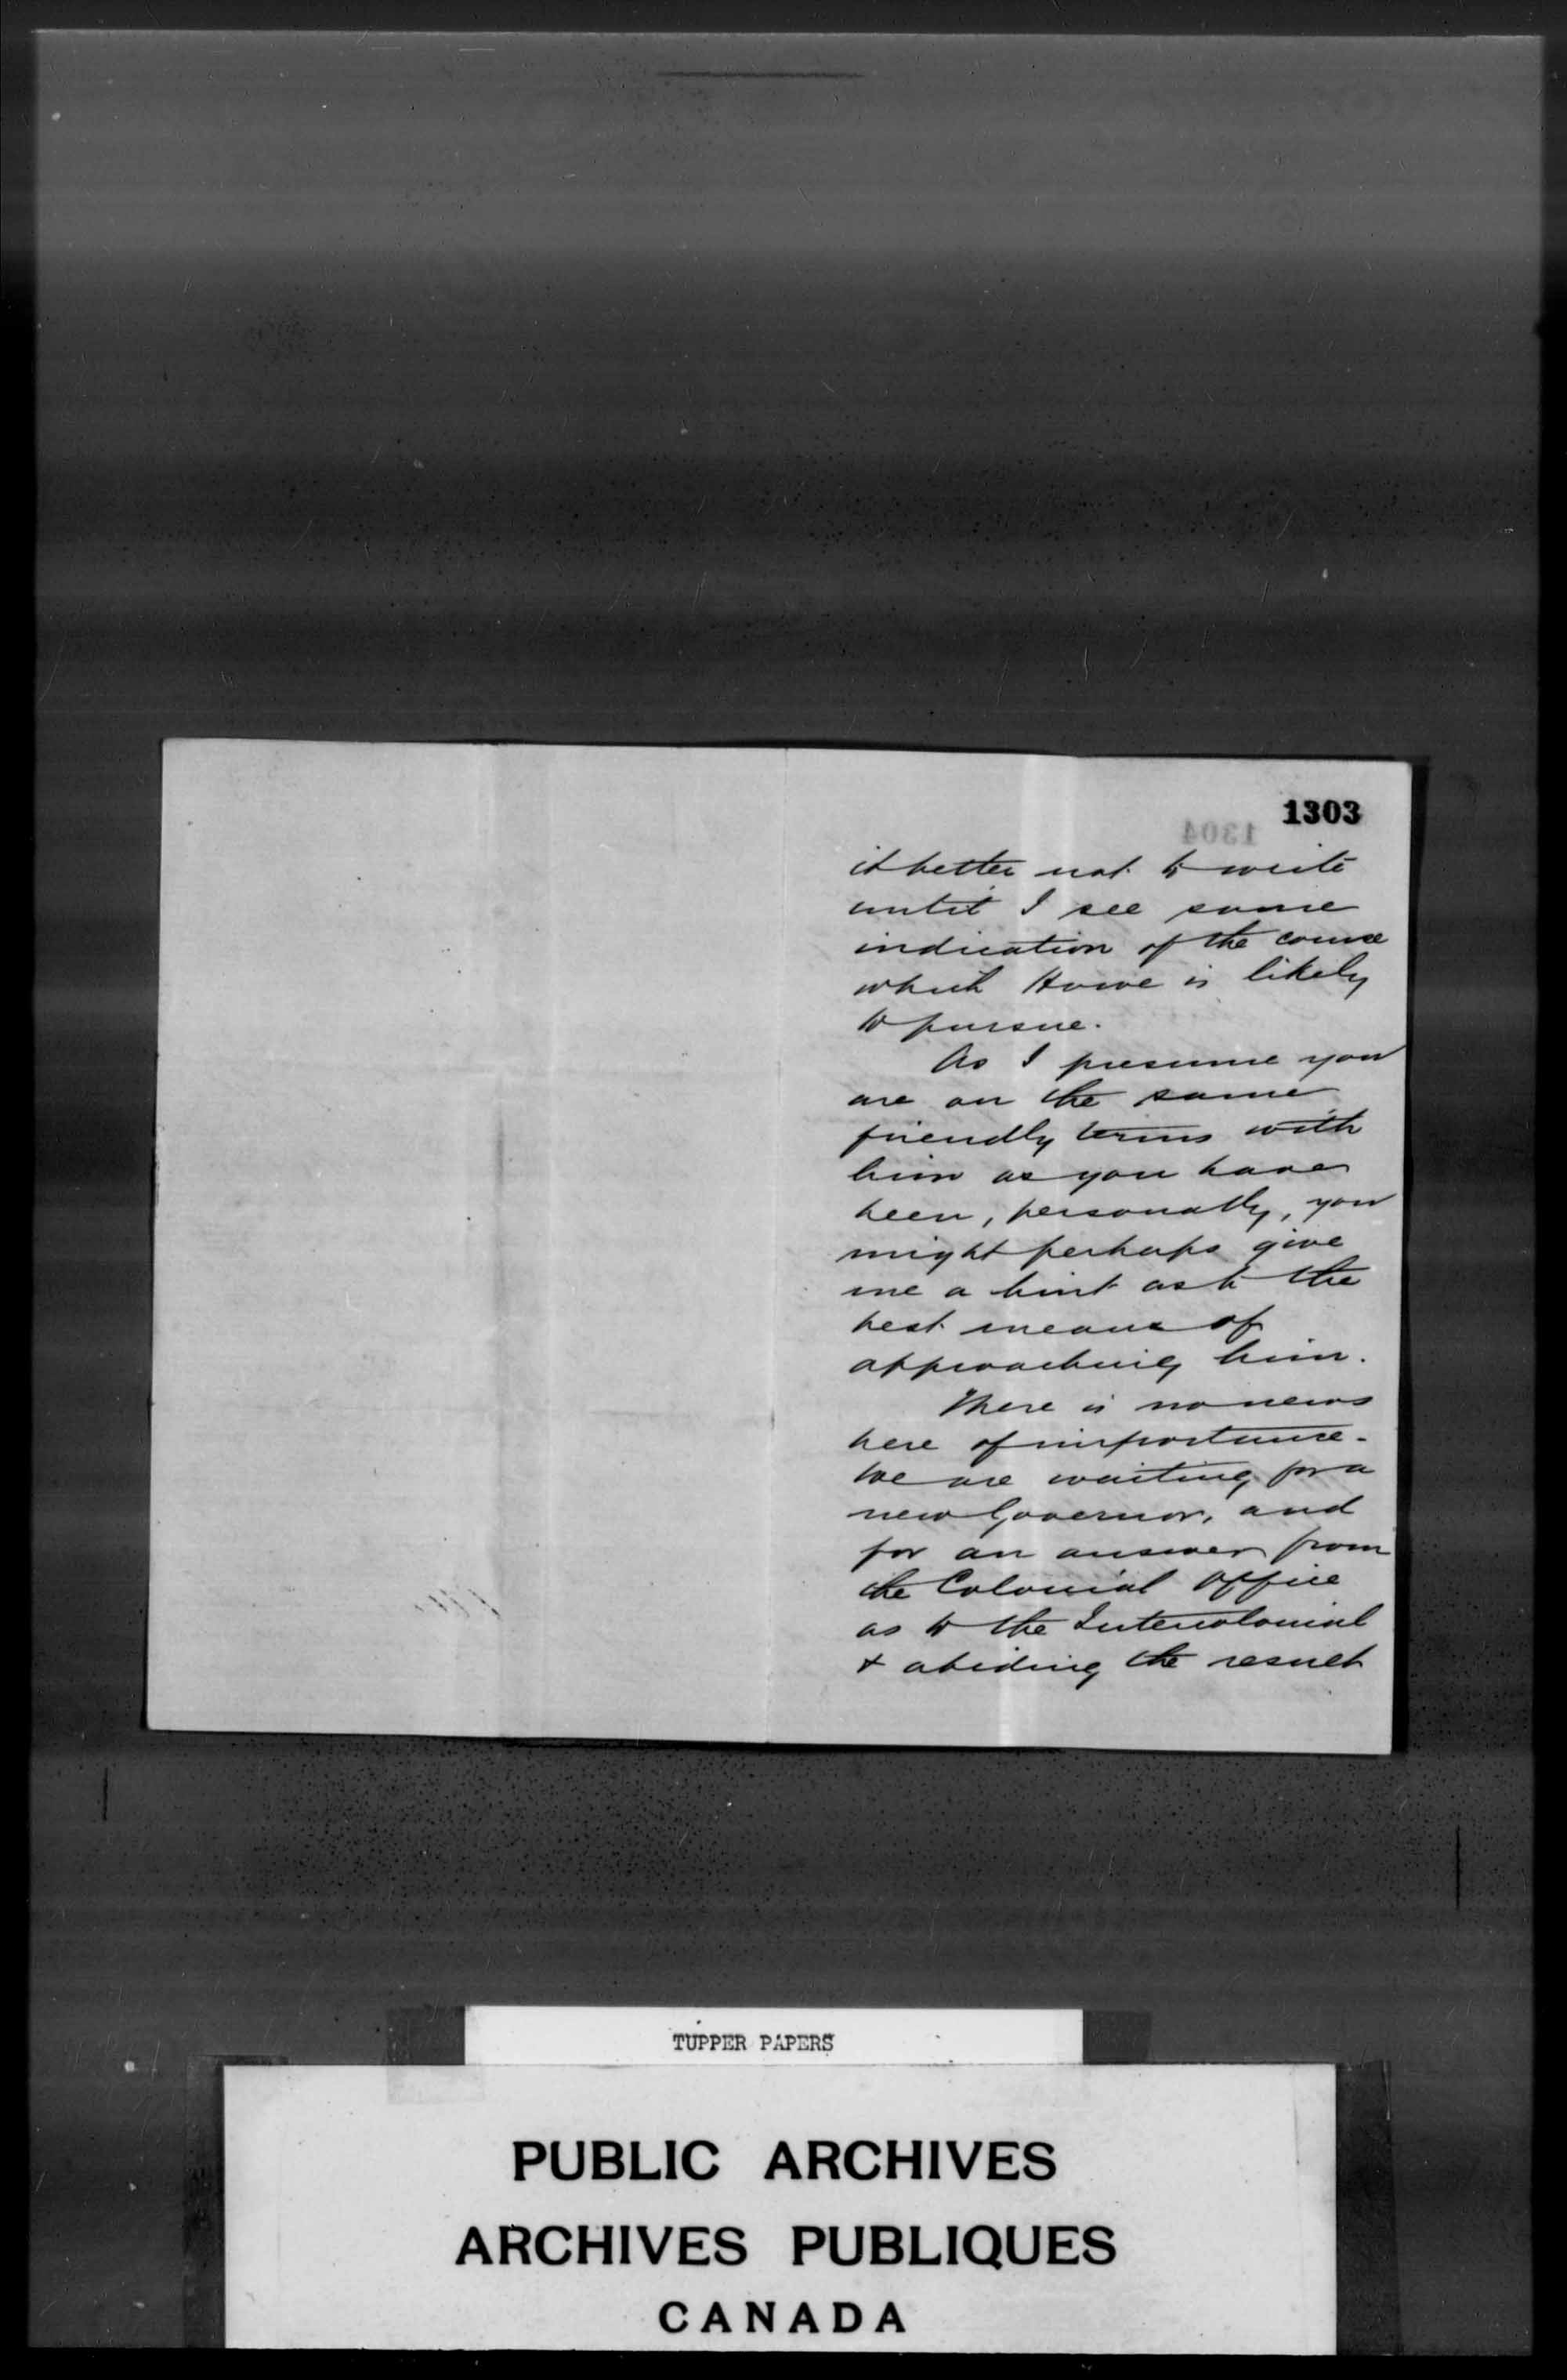 1303
1304
it better not to write
until I see some
indication of the course
which Howe is likely
to pursue.
As I presume you
are on the same
friendly terms with
him as you have
been, personally, you
might perhaps give
me a hint as to the
best means of
approaching him.
There is no news
here of importance.
We are waiting for a
new Governor, and
for an answer from
the Colonial Office
as to the Intercolonial
& abiding the result
TUPPER PAPERS
PUBLIC ARCHIVES
ARCHIVES PUBLIQUES
CANADA